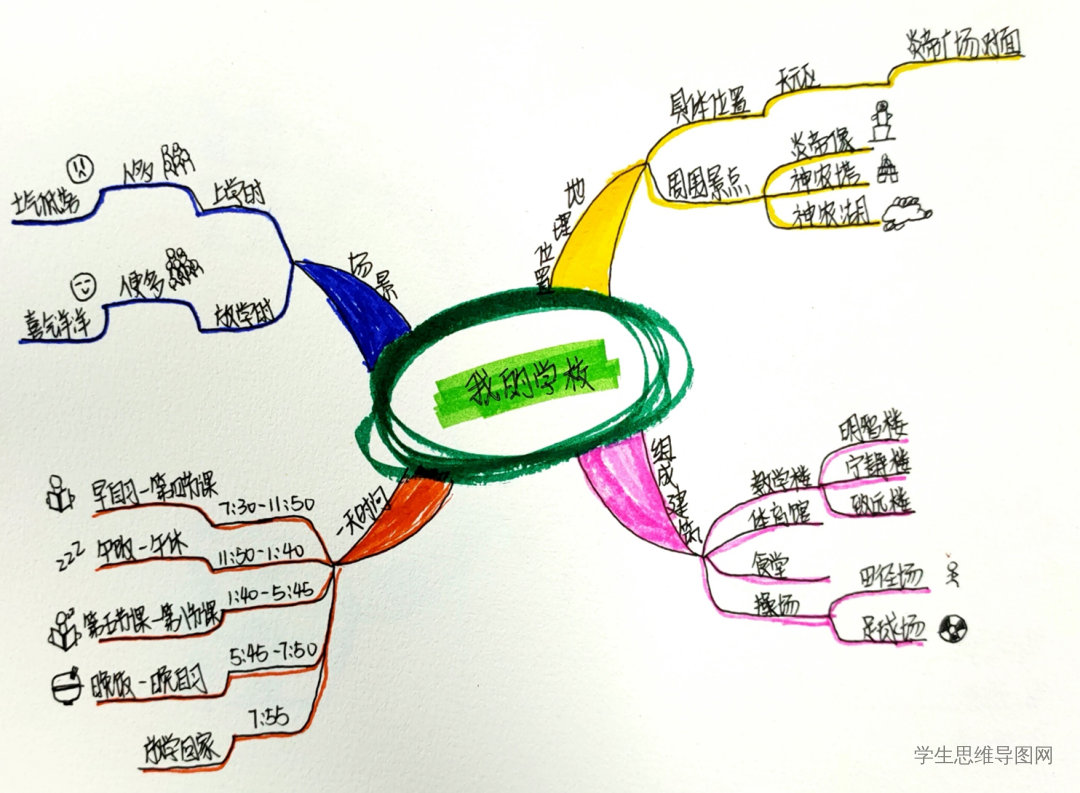 我的学校
地理位置
具体位置
天元区
炎帝广场对面
周围景点
炎帝像
神农塔
神农湖
组成建筑
教学楼
明智楼
宁静楼
致远楼
体育馆
食堂
操场
田径场
足球场
一天时间
7:30-11:50
早自习-第四节课
11:50-1:40
午饭-午休
zzz
1:40-5:45
第五节课-第八节课
5:45-7:50
晚饭-晚自习
7:55
放学回家
场景
上学时
人多
放学时
便多
喜气洋洋
学生思维导图网